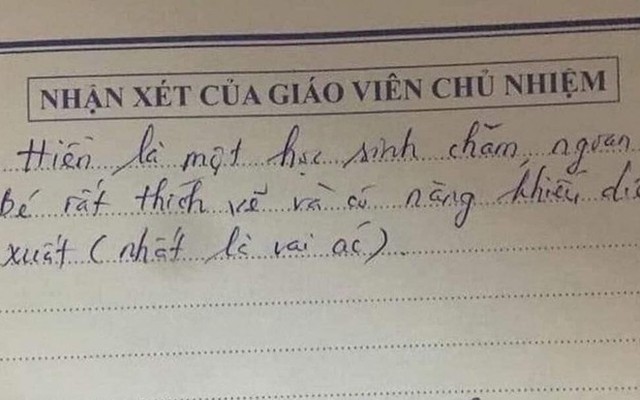 NHẬN XÉT CỦA GIÁO VIÊN CHỦ NHIỆM
Hiền là một học sinh chăm ngoan
Bé rất thích vẽ và có năng khiếu diễ
xuất (nhất là vai ác)